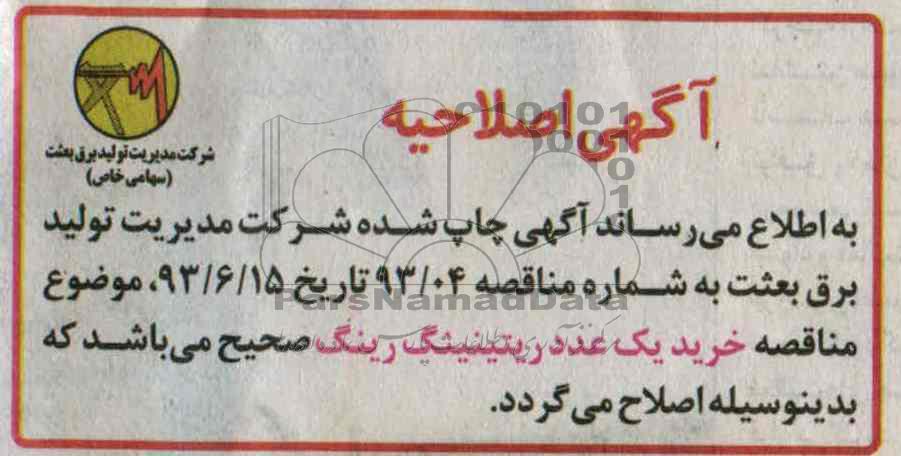 آگهی اصلاحیه
شرکت مدیریت تولید برق بعثت
(سهامی خاص)
به اطلاع می‌رساند آگهی چاپ شده شرکت مدیریت تولید
برق بعثت به شماره مناقصه ۹۳/۰۴ تاریخ ۹۳/۶/۱۵، موضوع
مناقصه خرید یک عدد ریتینینگ رینگ صحیح می‌باشد که
بدینوسیله اصلاح می‌گردد.
ParsNamadData